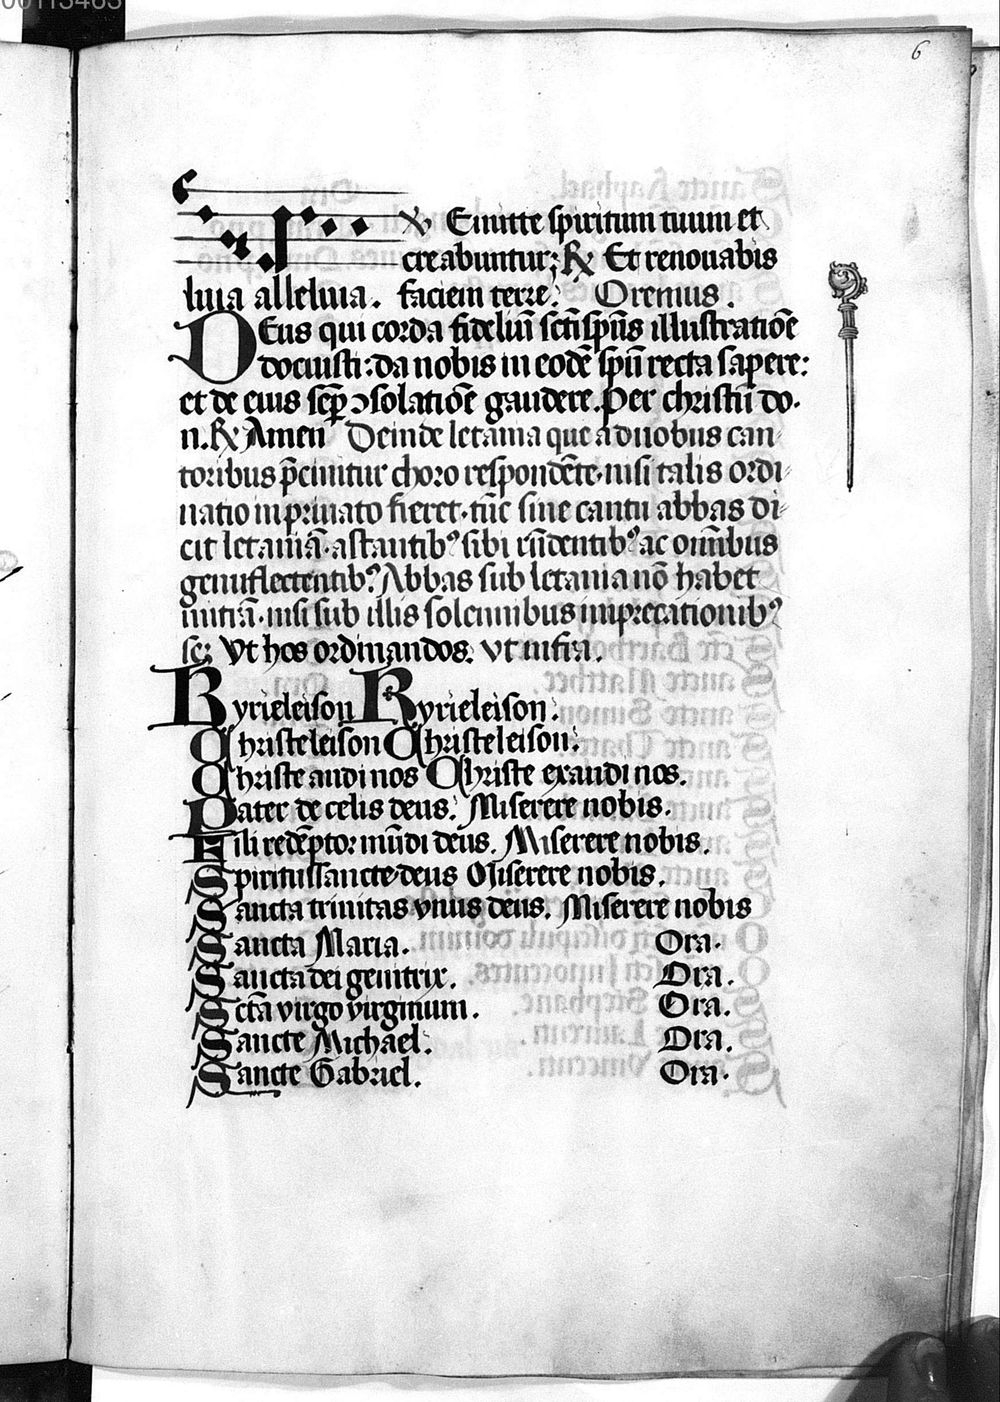 6
℣ Emitte spiritum tuum et
creabuntur; ℟ Et renouabis
luia alleluia. faciem terre. Oremus.
DEus qui corda fideliū sct̄i spūs illustratiōe
docuisti: da nobis in eodē spū recta sapere:
et de eius semp̲ ↄsolatiōe gaudere. Per christū do.
n. ℟ Amen Deinde letania que a duobus can
toribus p̄cinitur choro respondēte. nisi talis ordi
natio in priuato fieret. tūc sine cantu abbas di
cit letaniā. astantibꝰ sibi rn̄dentibꝰ ac om̄ibus
genuflectentibꝰ. Abbas sub letania nō habet
mitrā. nisi sub illis solennibus imprecationibꝰ
sc; Vt hos ordinandos. vt infra.
Kyrieleison Kyrieleison.
Christeleison Christeleison.
Christe audi nos Christe exaudi nos.
Pater de celis deus. Miserere nobis.
Fili redēptor mūdi deus. Miserere nobis.
Spiritussancte deus Miserere nobis.
Sancta trinitas vnus deus. Miserere nobis
Sancta Maria. Ora.
Sancta dei genitrix. Ora.
Sctā virgo virginum. Ora.
Sancte Michael. Ora.
Sancte Gabriel. Ora.